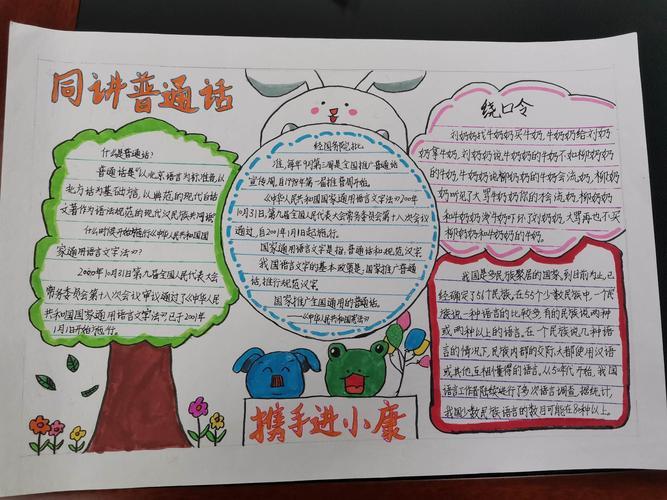 同讲普通话
什么是普通话?
普通话是"以北京语言为标准音,以
北方话为基础方言,以典范的现代白话
文著作为语法规范的现代汉民族共同语"
什么时候开始施行《中华人民共和国国
家通用语言文字法》?
2000年10月31日第九届全国人民代表大会
常务委员会第十八次会议审议通过了《中华人民
共和国国家通用语言文字法》已于2001年
1月1日开始施行。
经国务院批
准,每年9月第三周是全国推广普通话
宣传周,自1998年第一届推普周开始。
《中华人民共和国国家通用语言文字法》2000年
10月31日,第九届全国人民代表大会常务委员会第十八次会议
通过,自2001年1月1日起施行。
国家通用语言文字是指:普通话和规范汉字
我国语言文字的基本政策是:国家推广普通
话,推行规范汉字
国家推广全国通用的普通话。
——《中华人民共和国宪法》
绕口令
刘奶奶找牛奶奶买牛奶,牛奶奶给刘奶
奶拿牛奶,刘奶奶说牛奶奶的牛奶不如柳奶奶
的牛奶,牛奶奶说柳奶奶的牛奶会流奶,柳奶
奶听见了大骂牛奶奶你的才会流奶,柳奶奶
和牛奶奶泼牛奶吓坏了刘奶奶,大骂再也不买
柳奶奶和牛奶奶的牛奶。
我国是多民族聚居的国家,到目前为止,已
经确定了56个民族,在55个少数民族中,一个民
族说一种语言的比较多,有的民族说两种
或两种以上的语言。在一个民族说几种语
言的情况下,民族内部的交际,大都使用汉语
或其他互相懂得的语言,从50年代开始,我国
语言工作者陆续进行了多次语言调查,据统计,
我国少数民族语言的数目可能在80种以上。
携手进小康